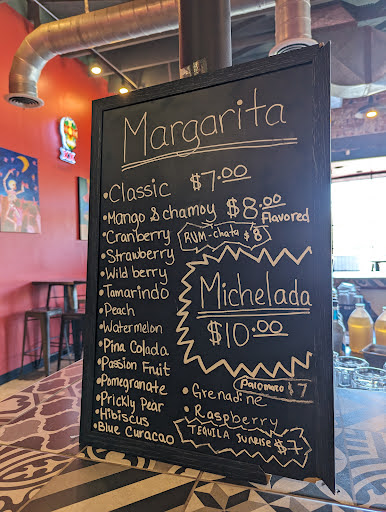 Margarita
• Classic $7.00
• Mango & chamoy $8.00
Flavored
• Cranberry
RUM-chata $8
• Strawberry
• Wild berry
• Tamarindo
• Peach
• Watermelon
• Pina Colada
• Passion Fruit
• Pomegranate
• Prickly Pear
• Hibiscus
• Blue Curacao
Michelada
$10.00
Paloma $7
• Grenadine
• Raspberry
TEQUILA SUNRISE $7